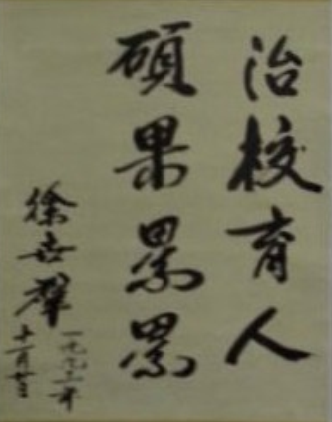 治校育人
硕果累累
徐世群
一九九二年
十一月廿三